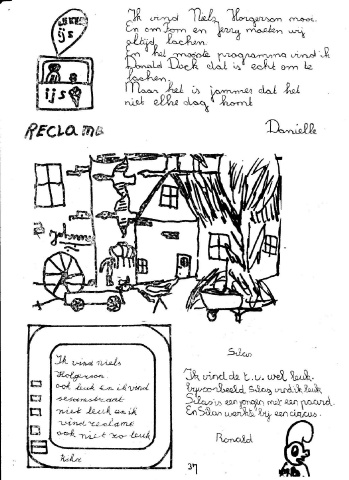 ijs
ijs
Ik vind Niels Horgerson mooi.
En om tom en jerry moeten wij
altijd lachen.
En het mooiste programma vind ik
Donald Duck dat is echt om te
lachen.
Maar het is jammer dat het
niet elke dag komt
Danielle
RECLAME
Ik vind niels
Holgerson.
ook leuk en ik vind
sesamstraat
niet leuk en ik
vind reclame
ook niet zo leuk
Silas
Ik vind de t.v. wel leuk
bijvoorbeeld Silas vind ik leuk
Silas is een jongen met een paard.
En Silas werkt bij een circus.
Ronald
37